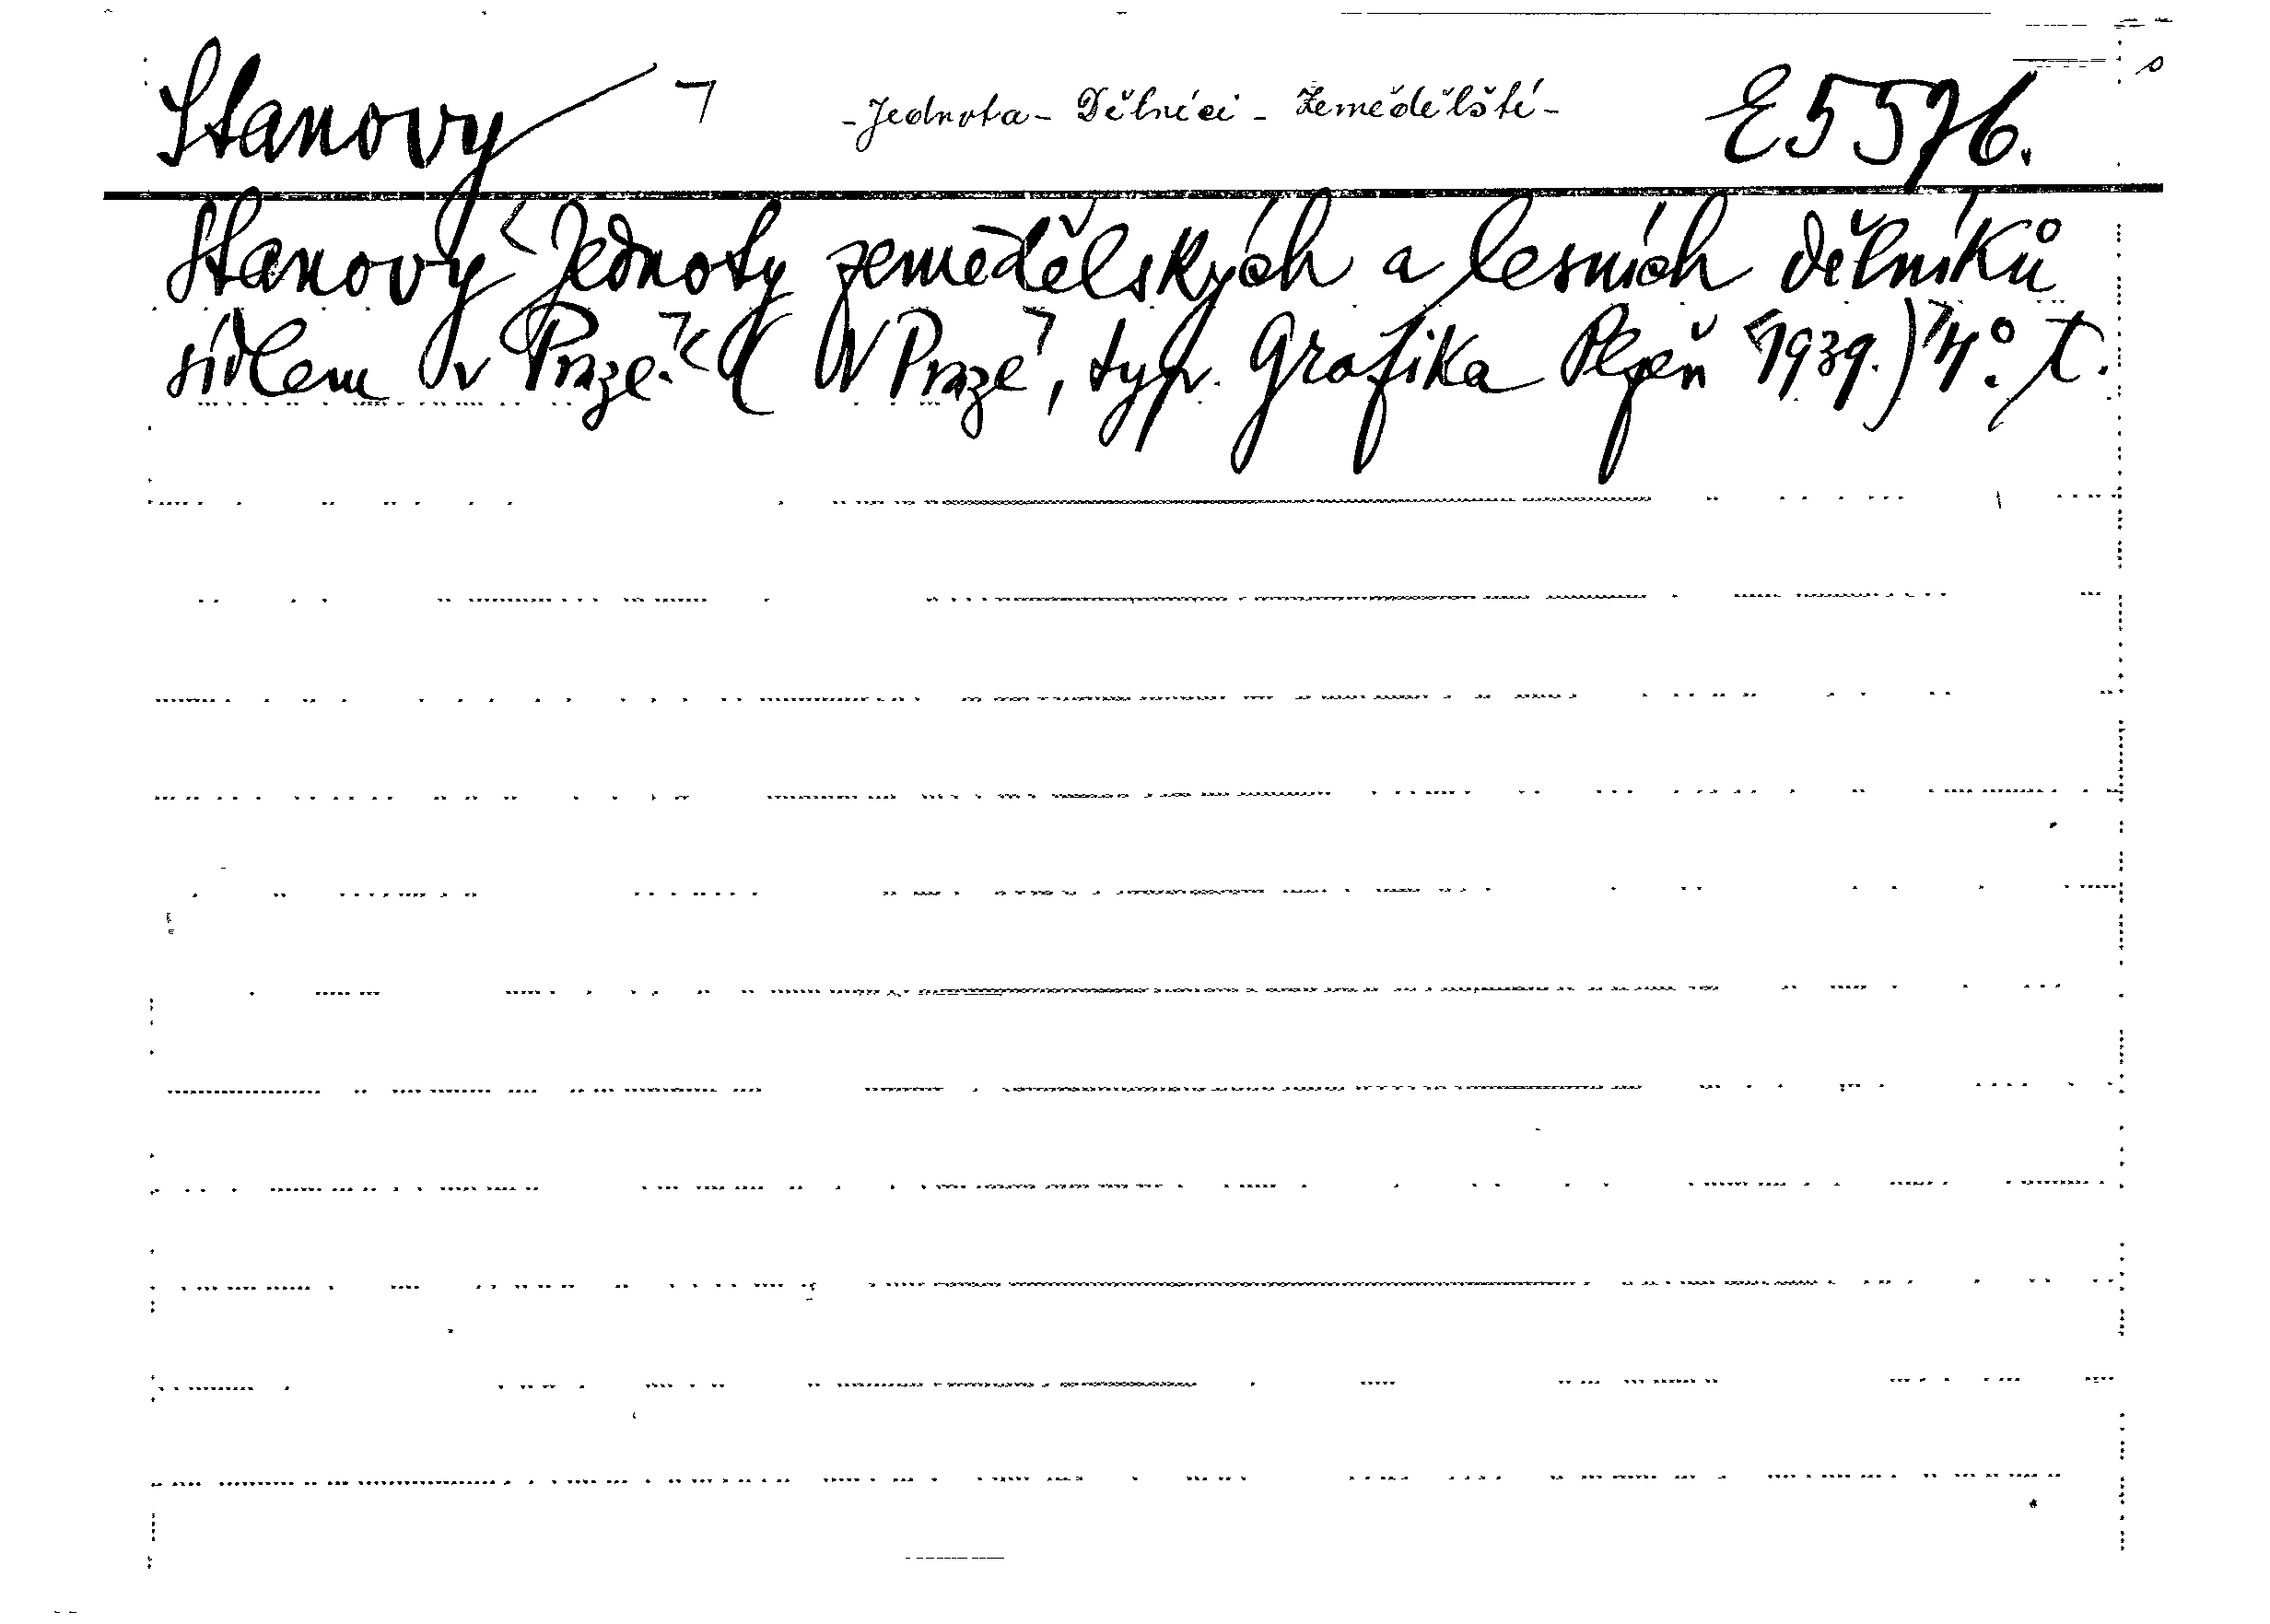 Stanovy ¬ - Jednota - Dělníci - Zemědělští - E 5576.
Stanovy < Jednoty zemědělských a lesních dělníků
sídlem v Praze. ¬ < ( V Praze ¬, typ. Grafika Plzeň < 1939.) ¬ 4°. t.